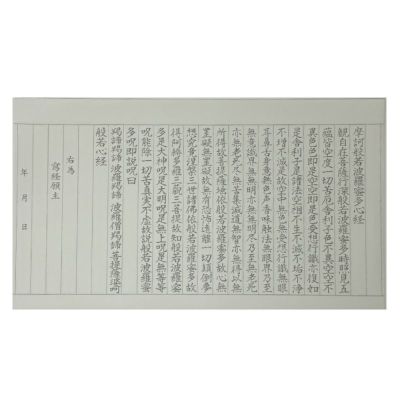 摩訶般若波羅蜜多心経
観自在菩薩行深般若波羅蜜多時照見五
蘊皆空度一切苦厄舎利子色不異空空不
異色色即是空空即是色受想行識亦復如
是舎利子是諸法空相不生不滅不垢不浄
不増不減是故空中無色無受想行識無眼
耳鼻舌身意無色声香味触法無眼界乃至
無意識界無無明亦無無明尽乃至無老死
亦無老死尽無苦集滅道無智亦無得以無
所得故菩提薩埵依般若波羅蜜多故心無
罣礙無罣礙故無有恐怖遠離一切顛倒夢
想究竟涅槃三世諸仏依般若波羅蜜多故
得阿耨多羅三藐三菩提故知般若波羅蜜
多是大神呪是大明呪是無上呪是無等等
呪能除一切苦真実不虚故説般若波羅蜜
多呪即説呪曰
羯諦羯諦 波羅羯諦 波羅僧羯諦 菩提薩婆訶
般若心経
右為
写経願主
年 月 日